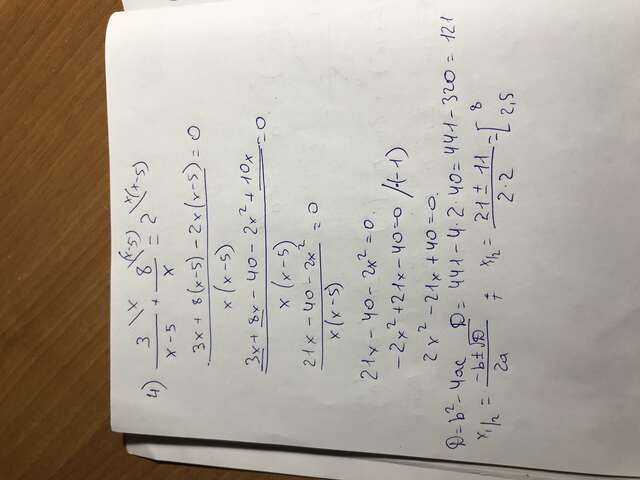 4) 3 \x / x-5 + 8 \(x-5) / x = 2 \x(x-5)
3x + 8(x-5) - 2x(x-5) / x(x-5) = 0
3x + 8x - 40 - 2x² + 10x / x(x-5) = 0
21x - 40 - 2x² / x(x-5) = 0
21x - 40 - 2x² = 0.
-2x² + 21x - 40 = 0 /·(-1)
2x² - 21x + 40 = 0.
D = b² - 4ac D = 441 - 4·2·40 = 441 - 320 = 121
x1/2 = -b±√D / 2a x1/2 = 21 ± 11 / 2·2 = [ 8 2,5